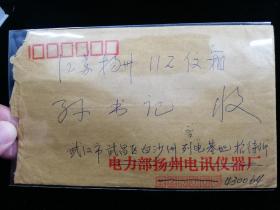 江苏扬州112信箱
孙书记 收
武汉市武昌区白沙洲列电基地招待所
电力部扬州电讯仪器厂
430064